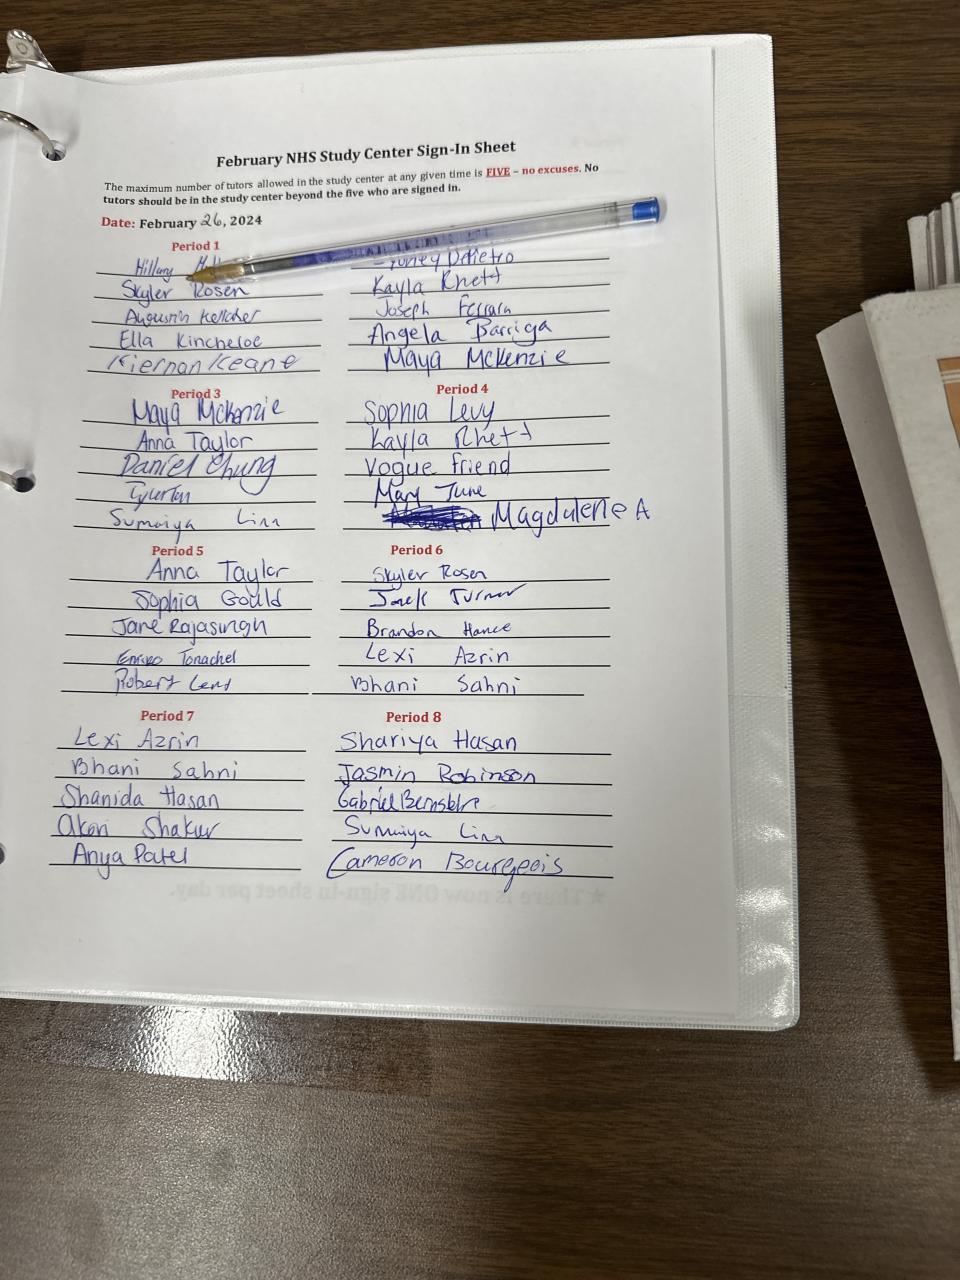 February NHS Study Center Sign-In Sheet
The maximum number of tutors allowed in the study center at any given time is FIVE – no excuses. No
tutors should be in the study center beyond the five who are signed in.
Date: February 26, 2024
Period 1
Hillary
Skyler Rosen
Augustin Kelleher
Ella Kincheloe
Kiernan Keane
DiPietro
Kayla Rhett
Joseph Ferrara
Angela Barriga
Maya McKenzie
Period 3
Maya McKenzie
Anna Taylor
Daniel Chung
Sumaiya Linn
Period 4
Sophia Levy
Kayla Rhett
Vogue Friend
Mary June
Magdalene A
Period 5
Anna Taylor
Sophia Gould
Jane Rajasingh
Tonachel
Robert Lent
Period 6
Skyler Rosen
Jack Turner
Brandon Hance
Lexi Azrin
Bhani Sahni
Period 7
Lexi Azrin
Bhani Sahni
Shanida Hasan
Akori Shakur
Anya Patel
Period 8
Shariya Hasan
Jasmin Robinson
Gabriel
Sumaiya Linn
Cameron Bourgeois